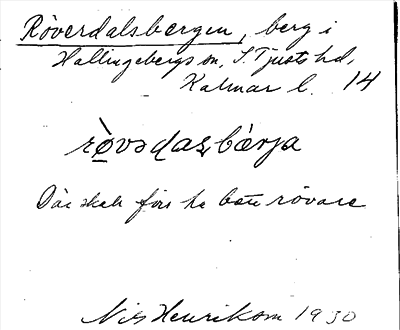 Röverdalsbergen, berg i
Hallingebergs sn, S. Tjusts hd,
Kalmar l. 14
rò̱vədas̩bæ̀rja
Där skall förr ha bott rövare
Nils Henrikson 1930